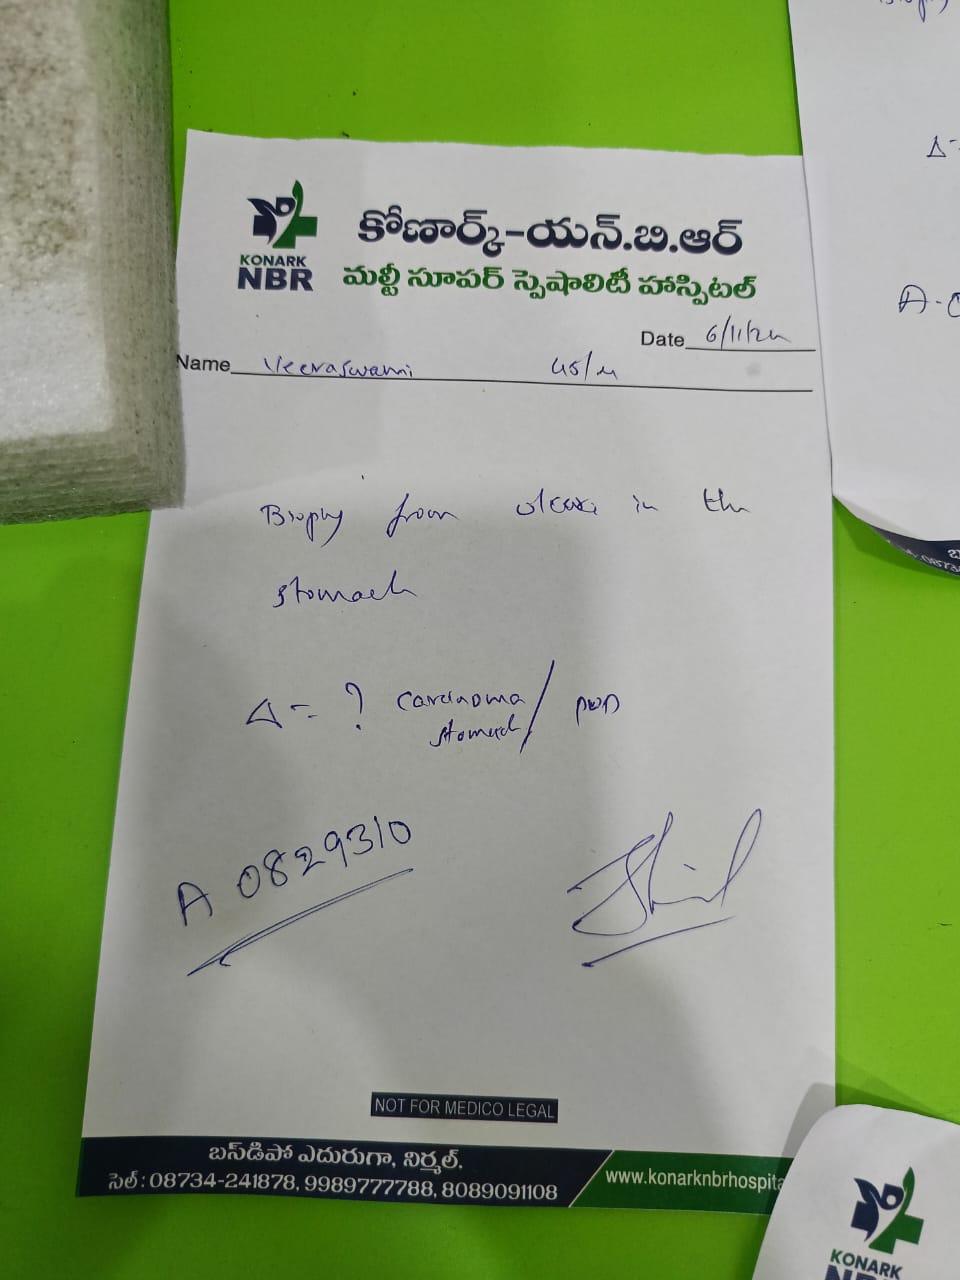 KONARK
NBR
కోణార్క్-యన్.బి.ఆర్
మల్టీ సూపర్ స్పెషాలిటీ హాస్పిటల్
Date 6/11/24
Name Veeraswami 45/M
Biopsy from ulcer in the
stomach
Δ = ? carcinoma
stomach /
A 0829310
NOT FOR MEDICO LEGAL
బస్‌డిపో ఎదురుగా, నిర్మల్.
సెల్ : 08734-241878, 9989777788, 8089091108
www.konarknbrhospita
Δ-
A-0
KONARK